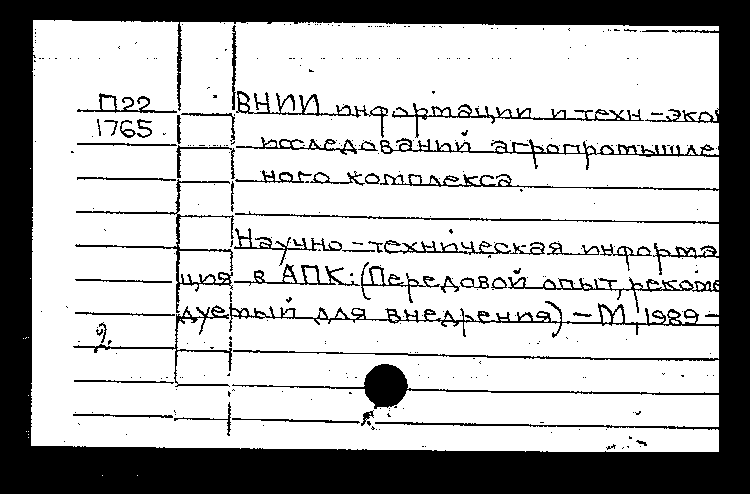 П22
1765
ВНИИ информации и техн-эко
исследований агропромышле
ного комплекса.
Научно-техническая информа
ция в АПК: (Передовой опыт, рекоме
дуемый для внедрения) - М, 1989 -
2